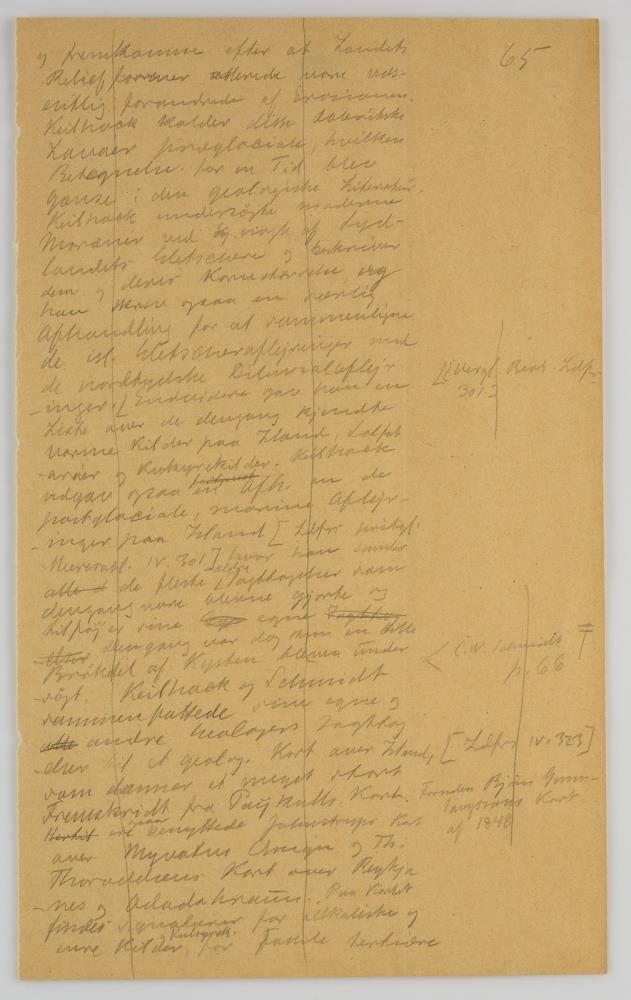 65
og fremkomne efter at Landets
Relief forover allerede vare væs-
entlig forandrede af Erosionen.
Keilhack kalder disse doleritiske
Lavaer præglaciale, hvilken
Betegnelse for en Tid blev
i den geologiske Literatur.
Keilhack undersögte moderne
Moræner ved af Syd-
landets Gletschere og beskriver
dem og deres Kornstörrelse og
han skrev ogsaa en særlig
Afhandling for at sammenligne
de isl. Gletscheraflejringer med
de nordtydske Diluvialaflejr
-inger. [Endvidere gav han en
Liste over de dengang kjendte
varme Kilder paa Island, Solfat
-arer og Kulsyrekilder. Keilhack
udgav ogsaa en Afh. om de
postglaciale, marine Aflejr-
inger paa Island [Ldfrs postgl.
IV. 301] hvor han samler
alle de fleste ældre Iagttagelser som
dengang vare blevne gjorte og
tilföjer sine egne Iagttag
dengang var dog kun en lille
Brökdel af Kysten bleven under
-sögt. Keilhack og Schmidt
sammenfattede sine egne og
alle andre Geologers Iagttag
-elser til et geolog. Kort over Island, [Ldfrs IV. 323]
som danner et meget stort
Fremskridt fra Paijkulls Kort. Foruden Björn Gunn-
laugssons Kort
af 1848
ere ogsaa benyttede Johnstrups Kort
over Myvatns Omegn og Th.
Thoroddsens Kort over Reykja
-nes og Odadahraun. Paa Kortet
findes Signaturer for alkaliske og
sure Kilder, Kulsyrek. for Fossile tertiære
301]
C.W. Schmidt
p. 66